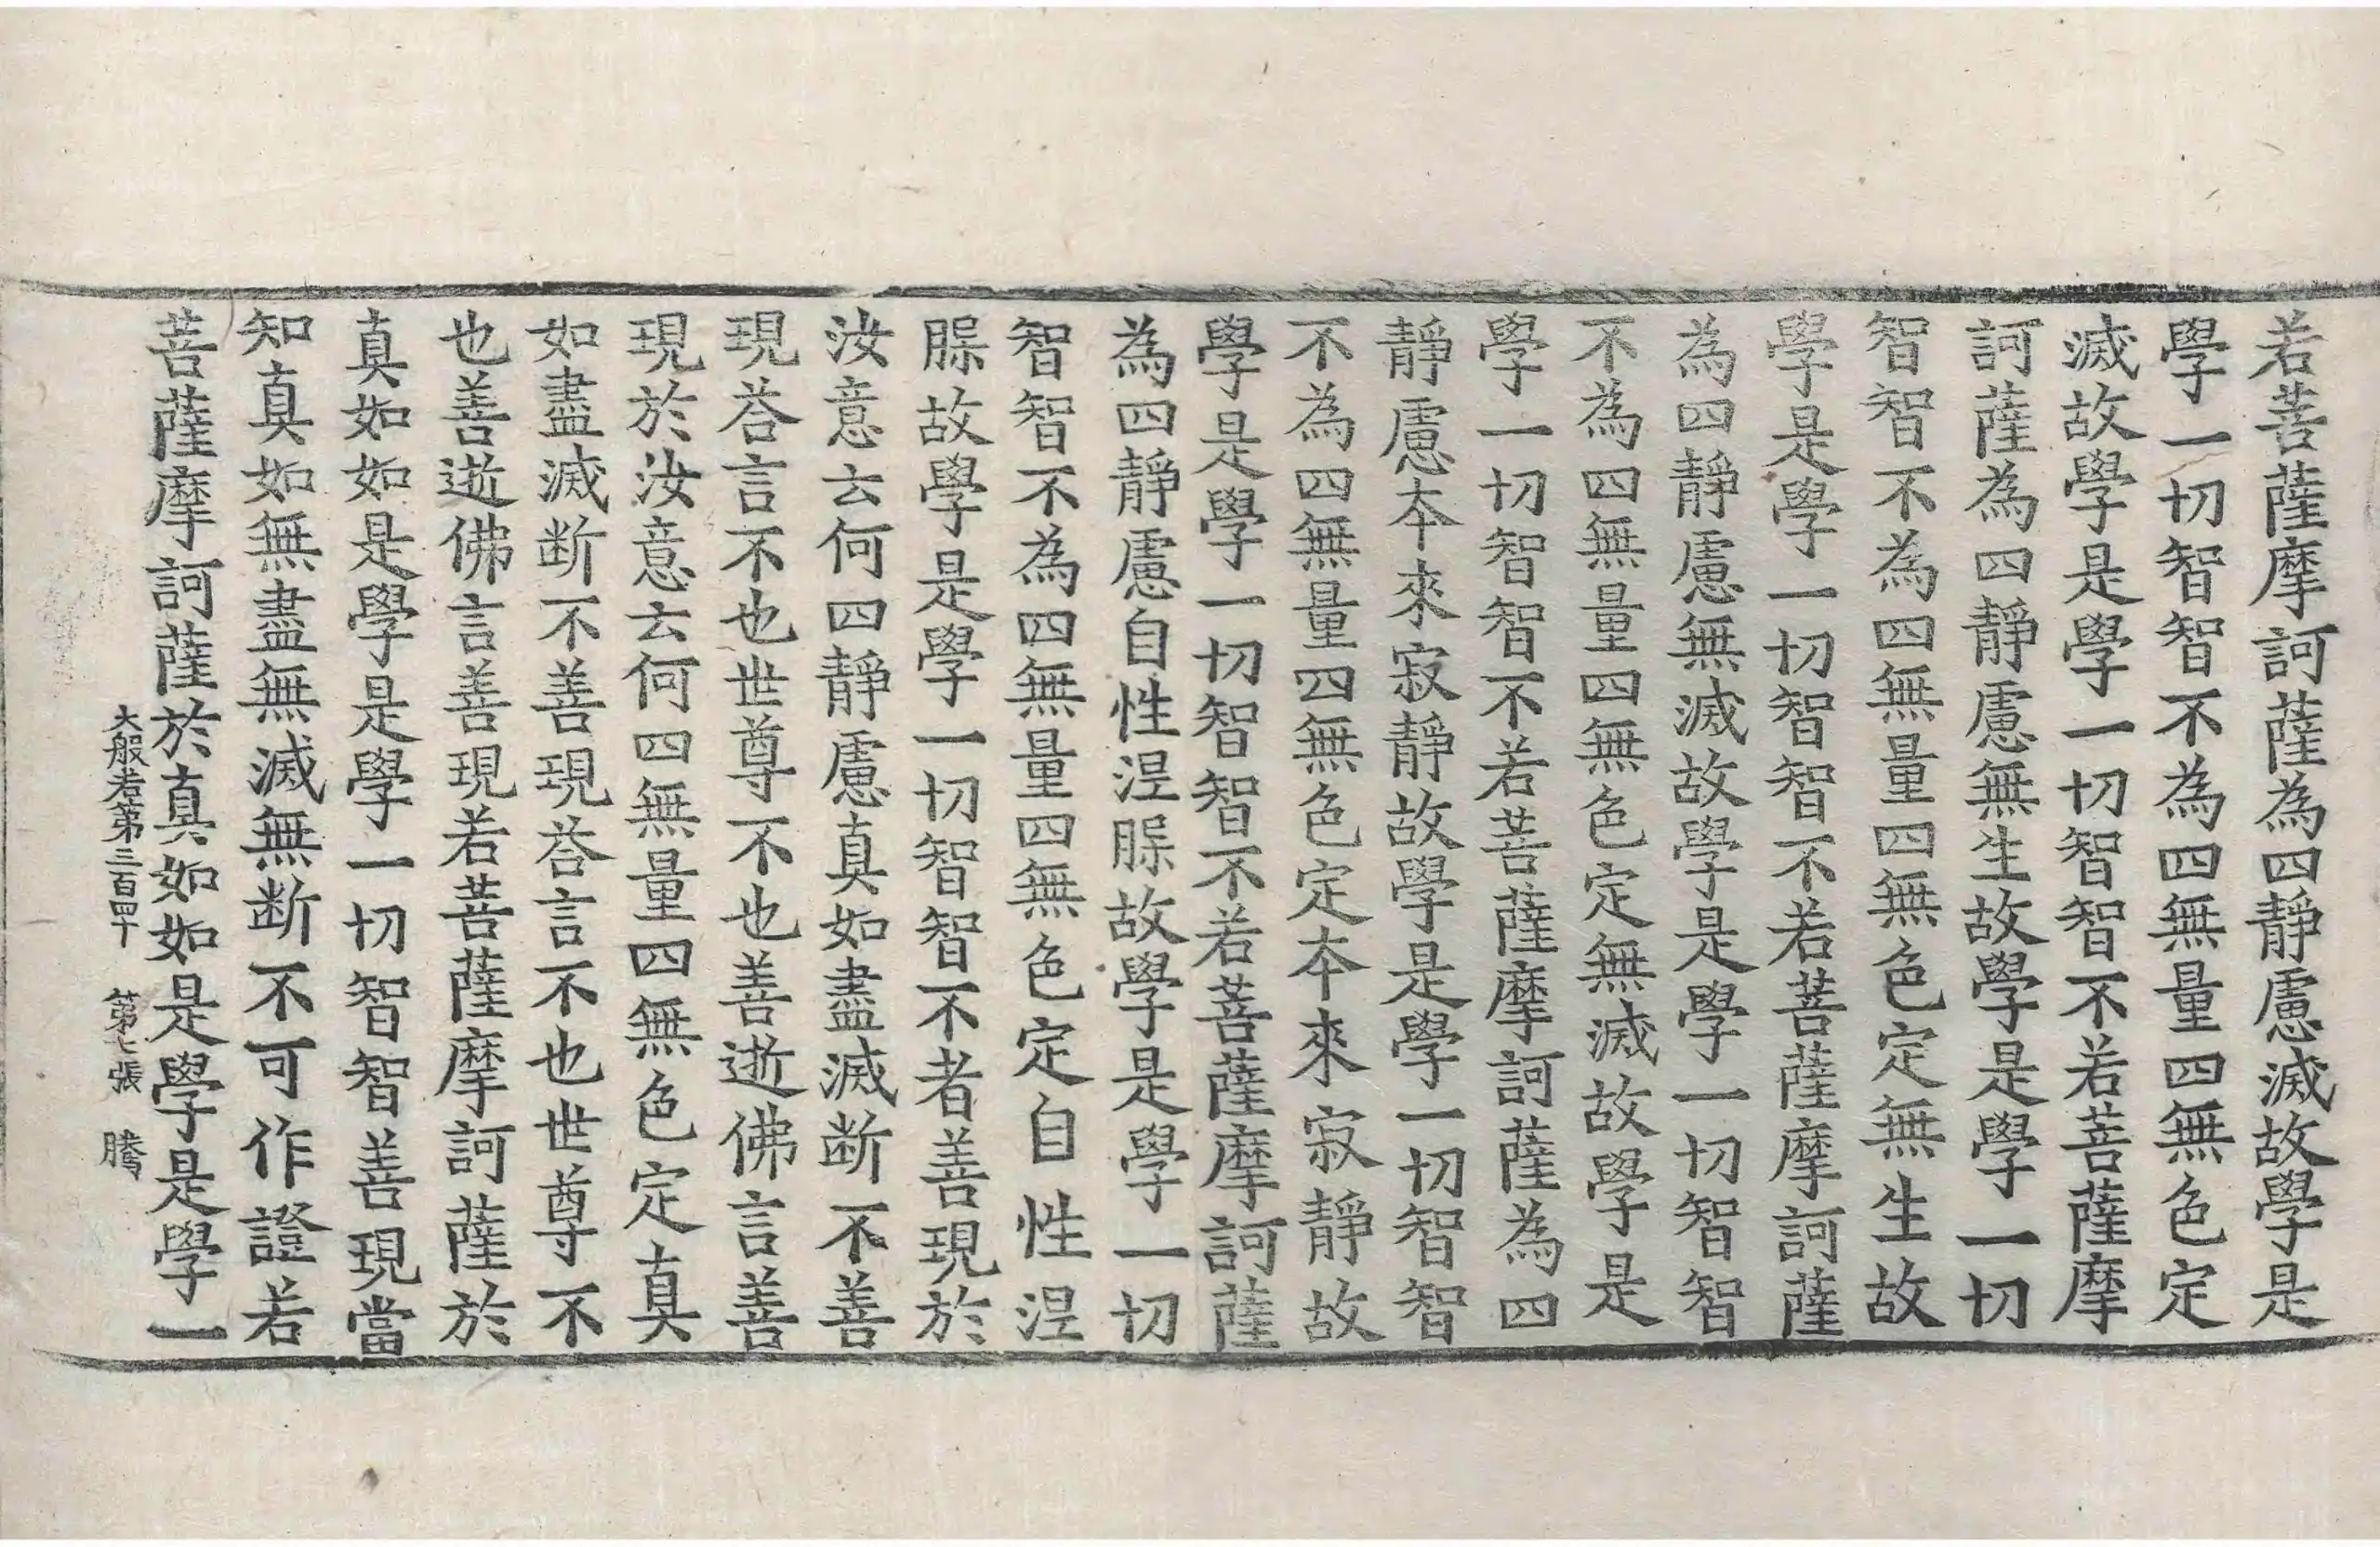 若菩薩摩訶薩為四靜慮滅故學是
學一切智智不為四無量四無色定
滅故學是學一切智智不若菩薩摩
訶薩為四靜慮無生故學是學一切
智智不為四無量四無色定無生故
學是學一切智智不若菩薩摩訶薩
為四靜慮無滅故學是學一切智智
不為四無量四無色定無滅故學是
學一切智智不若菩薩摩訶薩為四
靜慮本來寂靜故學是學一切智智
不為四無量四無色定本來寂靜故
學是學一切智智不若菩薩摩訶薩
為四靜慮自性涅槃故學是學一切
智智不為四無量四無色定自性涅
槃故學是學一切智智不者善現於
汝意云何四靜慮真如盡滅断不善
現荅言不也世尊不也善逝佛言善
現於汝意云何四無量四無色定真
如盡滅断不善現荅言不也世尊不
也善逝佛言善現若菩薩摩訶薩於
真如如是學是學一切智智善現當
知真如無盡無滅無断不可作證若
菩薩摩訶薩於真如如是學是學一
大般若第三百四十 第七張 騰